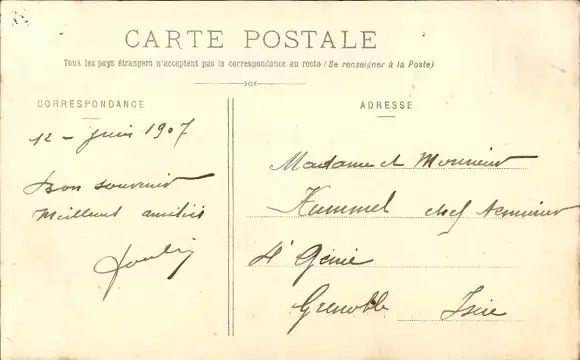 CARTE POSTALE
Tous les pays étrangers n'acceptent pas la correspondance au recto (Se renseigner à la Poste)
CORRESPONDANCE
ADRESSE
12 – Juin 1907
Bon souvenir
Meilleurs amitiés
Madame et Monsieur
Hummel chef Armurier
4e Génie
Grenoble Isère